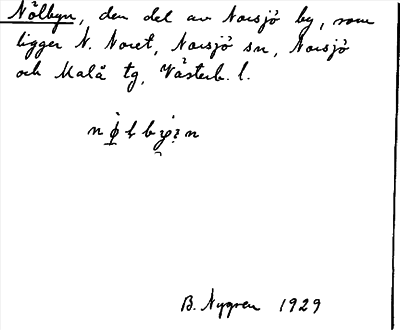 Nölbyn, den del av Norsjö by, som
ligger N. Noret, Norsjö sn, Norsjö
och Malå tg, Västerb. l.
B. Nygren 1929